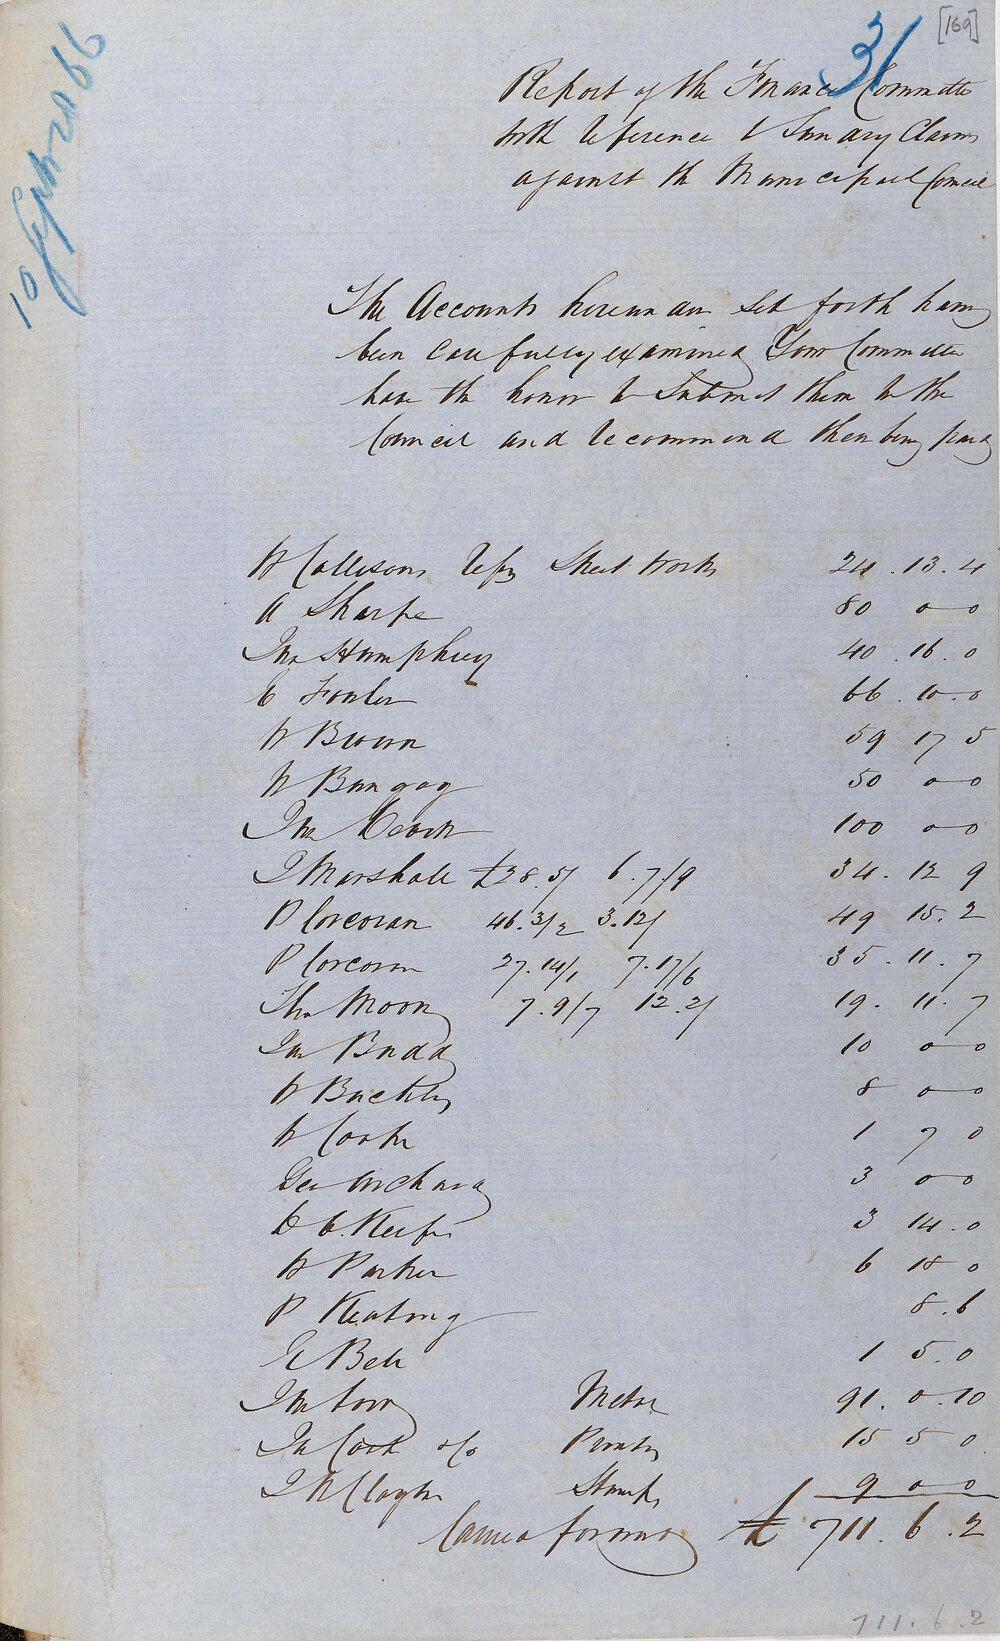 [169]
31
10 Septr 2d 66
Report of the Finance Committee
with reference to Sundry Claims
against the Municipal Council
The Accounts hereunder set forth having
been carefully examined Your Committee
have the honor to Submit them to the
Council and recommend their being paid
W Collisons Street Works 24 . 13 . 4
A Sharpe 80 0 0
Jno Humphrey 40 . 16 . 0
E Fowler 66 . 10 . 0
W Brown 59 17 5
W Bungay 50 0 0
Jno 100 0 0
J Marshall £28 . 5/ 6 . 7/9 34 . 12 9
P Corcoran 46 . 3/2 3 . 12/ 49 15 . 2
P Corcoran 27 . 14/1 7 . 17/6 35 . 11 . 7
Thos Moon 7 . 9/7 12 . 2/ 19 . 11 . 7
Jas Budd 10 0 0
W Buckley 8 0 0
W Cooke 1 7 0
Geo Orchard 3 0 0
Keefe 3 14 . 0
W Parker 6 18 0
P Keating 8 . 6
E Bell 1 5 . 0
Jno Metal 91 . 0 . 10
Jas Cook & Co Printing 15 5 0
Stamps 9 0 0
Carried forward £ 711 . 6 . 2
711 . 6 . 2